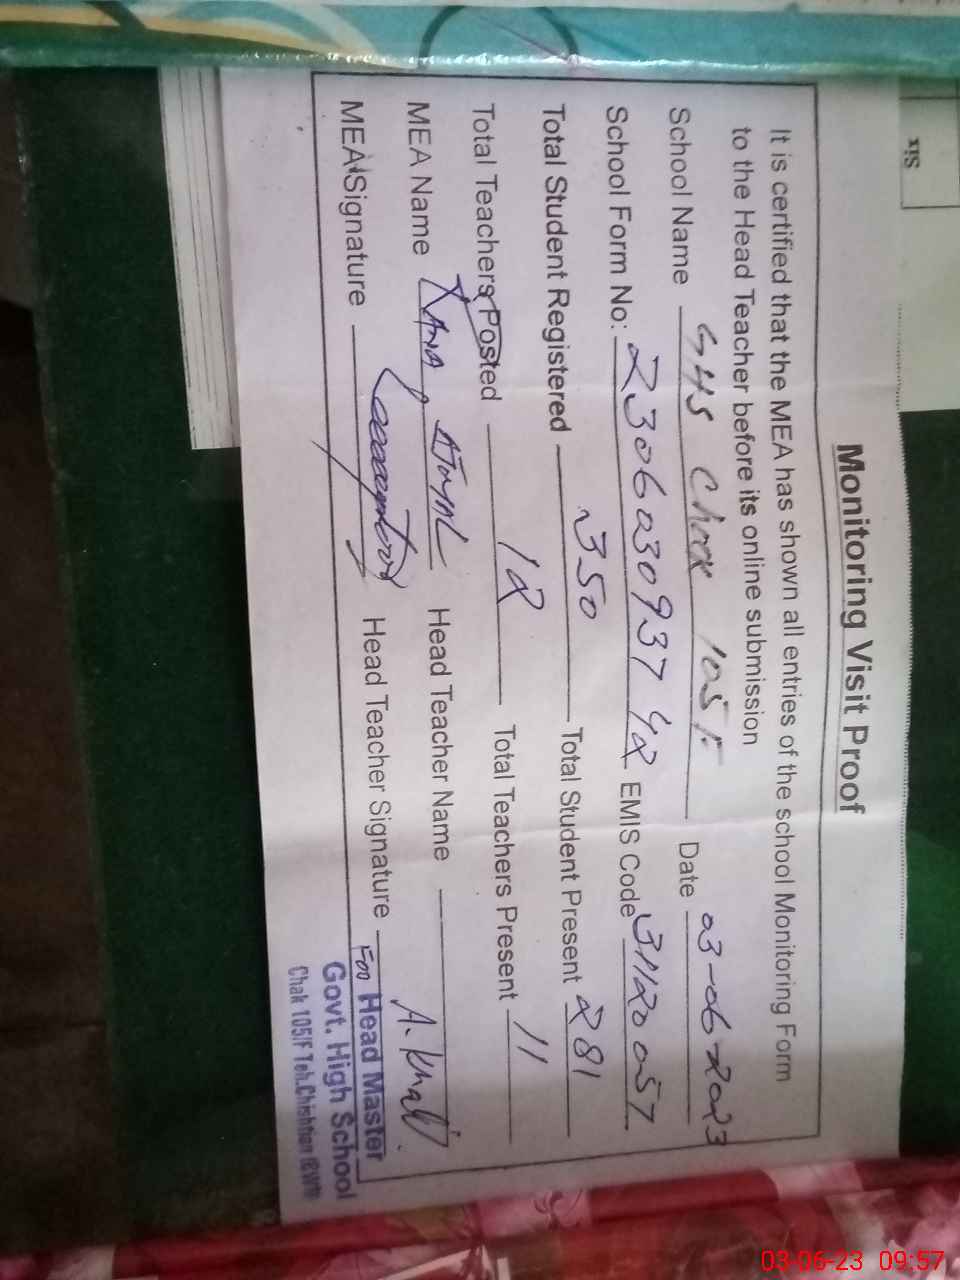 Six
Monitoring Visit Proof
It is certified that the MEA has shown all entries of the school Monitoring Form
to the Head Teacher before its online submission
School Name GHS Chak 105 F Date 03-06-2023
School Form No: 2306030937 42 EMIS Code 31120057
Total Student Registered 350 Total Student Present 281
Total Teachers Posted 12 Total Teachers Present 11
MEA Name RANA AJMAL Head Teacher Name A. Khali
MEA Signature Head Teacher Signature
For Head Master
Govt. High School
Chak 105/F Teh.Chishtian
03-06-23 09:57